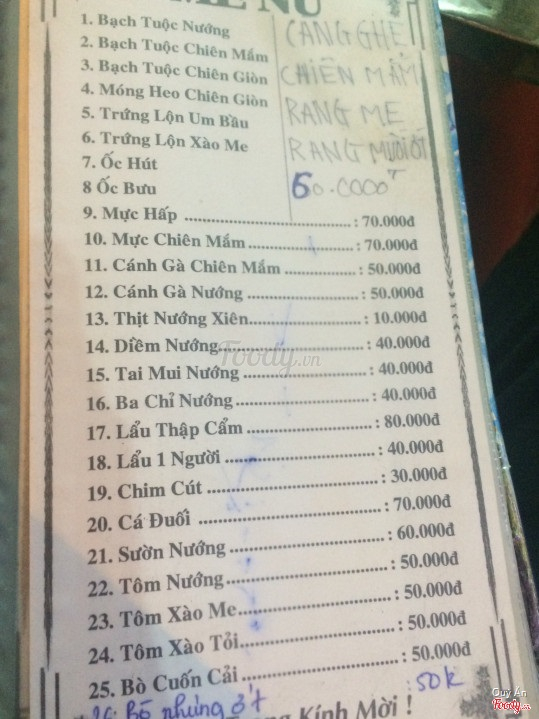 MENU
1. Bạch Tuộc Nướng
2. Bạch Tuộc Chiên Mắm
3. Bạch Tuộc Chiên Giòn
4. Móng Heo Chiên Giòn
5. Trứng Lộn Um Bầu
6. Trứng Lộn Xào Me
7. Ốc Hút
8 Ốc Bưu
CÀNG GHẸ
CHIÊN MẮM
RANG ME
RANG MUỐI ỚT
60.0000đ
9. Mực Hấp : 70.000đ
10. Mực Chiên Mắm : 70.000đ
11. Cánh Gà Chiên Mắm : 50.000đ
12. Cánh Gà Nướng : 50.000đ
13. Thịt Nướng Xiên : 10.000đ
14. Diềm Nướng : 40.000đ
15. Tai Mui Nướng : 40.000đ
16. Ba Chỉ Nướng : 40.000đ
17. Lẩu Thập Cẩm : 80.000đ
18. Lẩu 1 Người : 40.000đ
19. Chim Cút : 30.000đ
20. Cá Đuối : 70.000đ
21. Sườn Nướng : 60.000đ
22. Tôm Nướng : 50.000đ
23. Tôm Xào Me : 50.000đ
24. Tôm Xào Tỏi : 50.000đ
25. Bò Cuốn Cải : 50.000đ
26. Bò nhúng ớt : 50k
Kính Mời !
Foody.vn
Quý Ân
Foody.vn